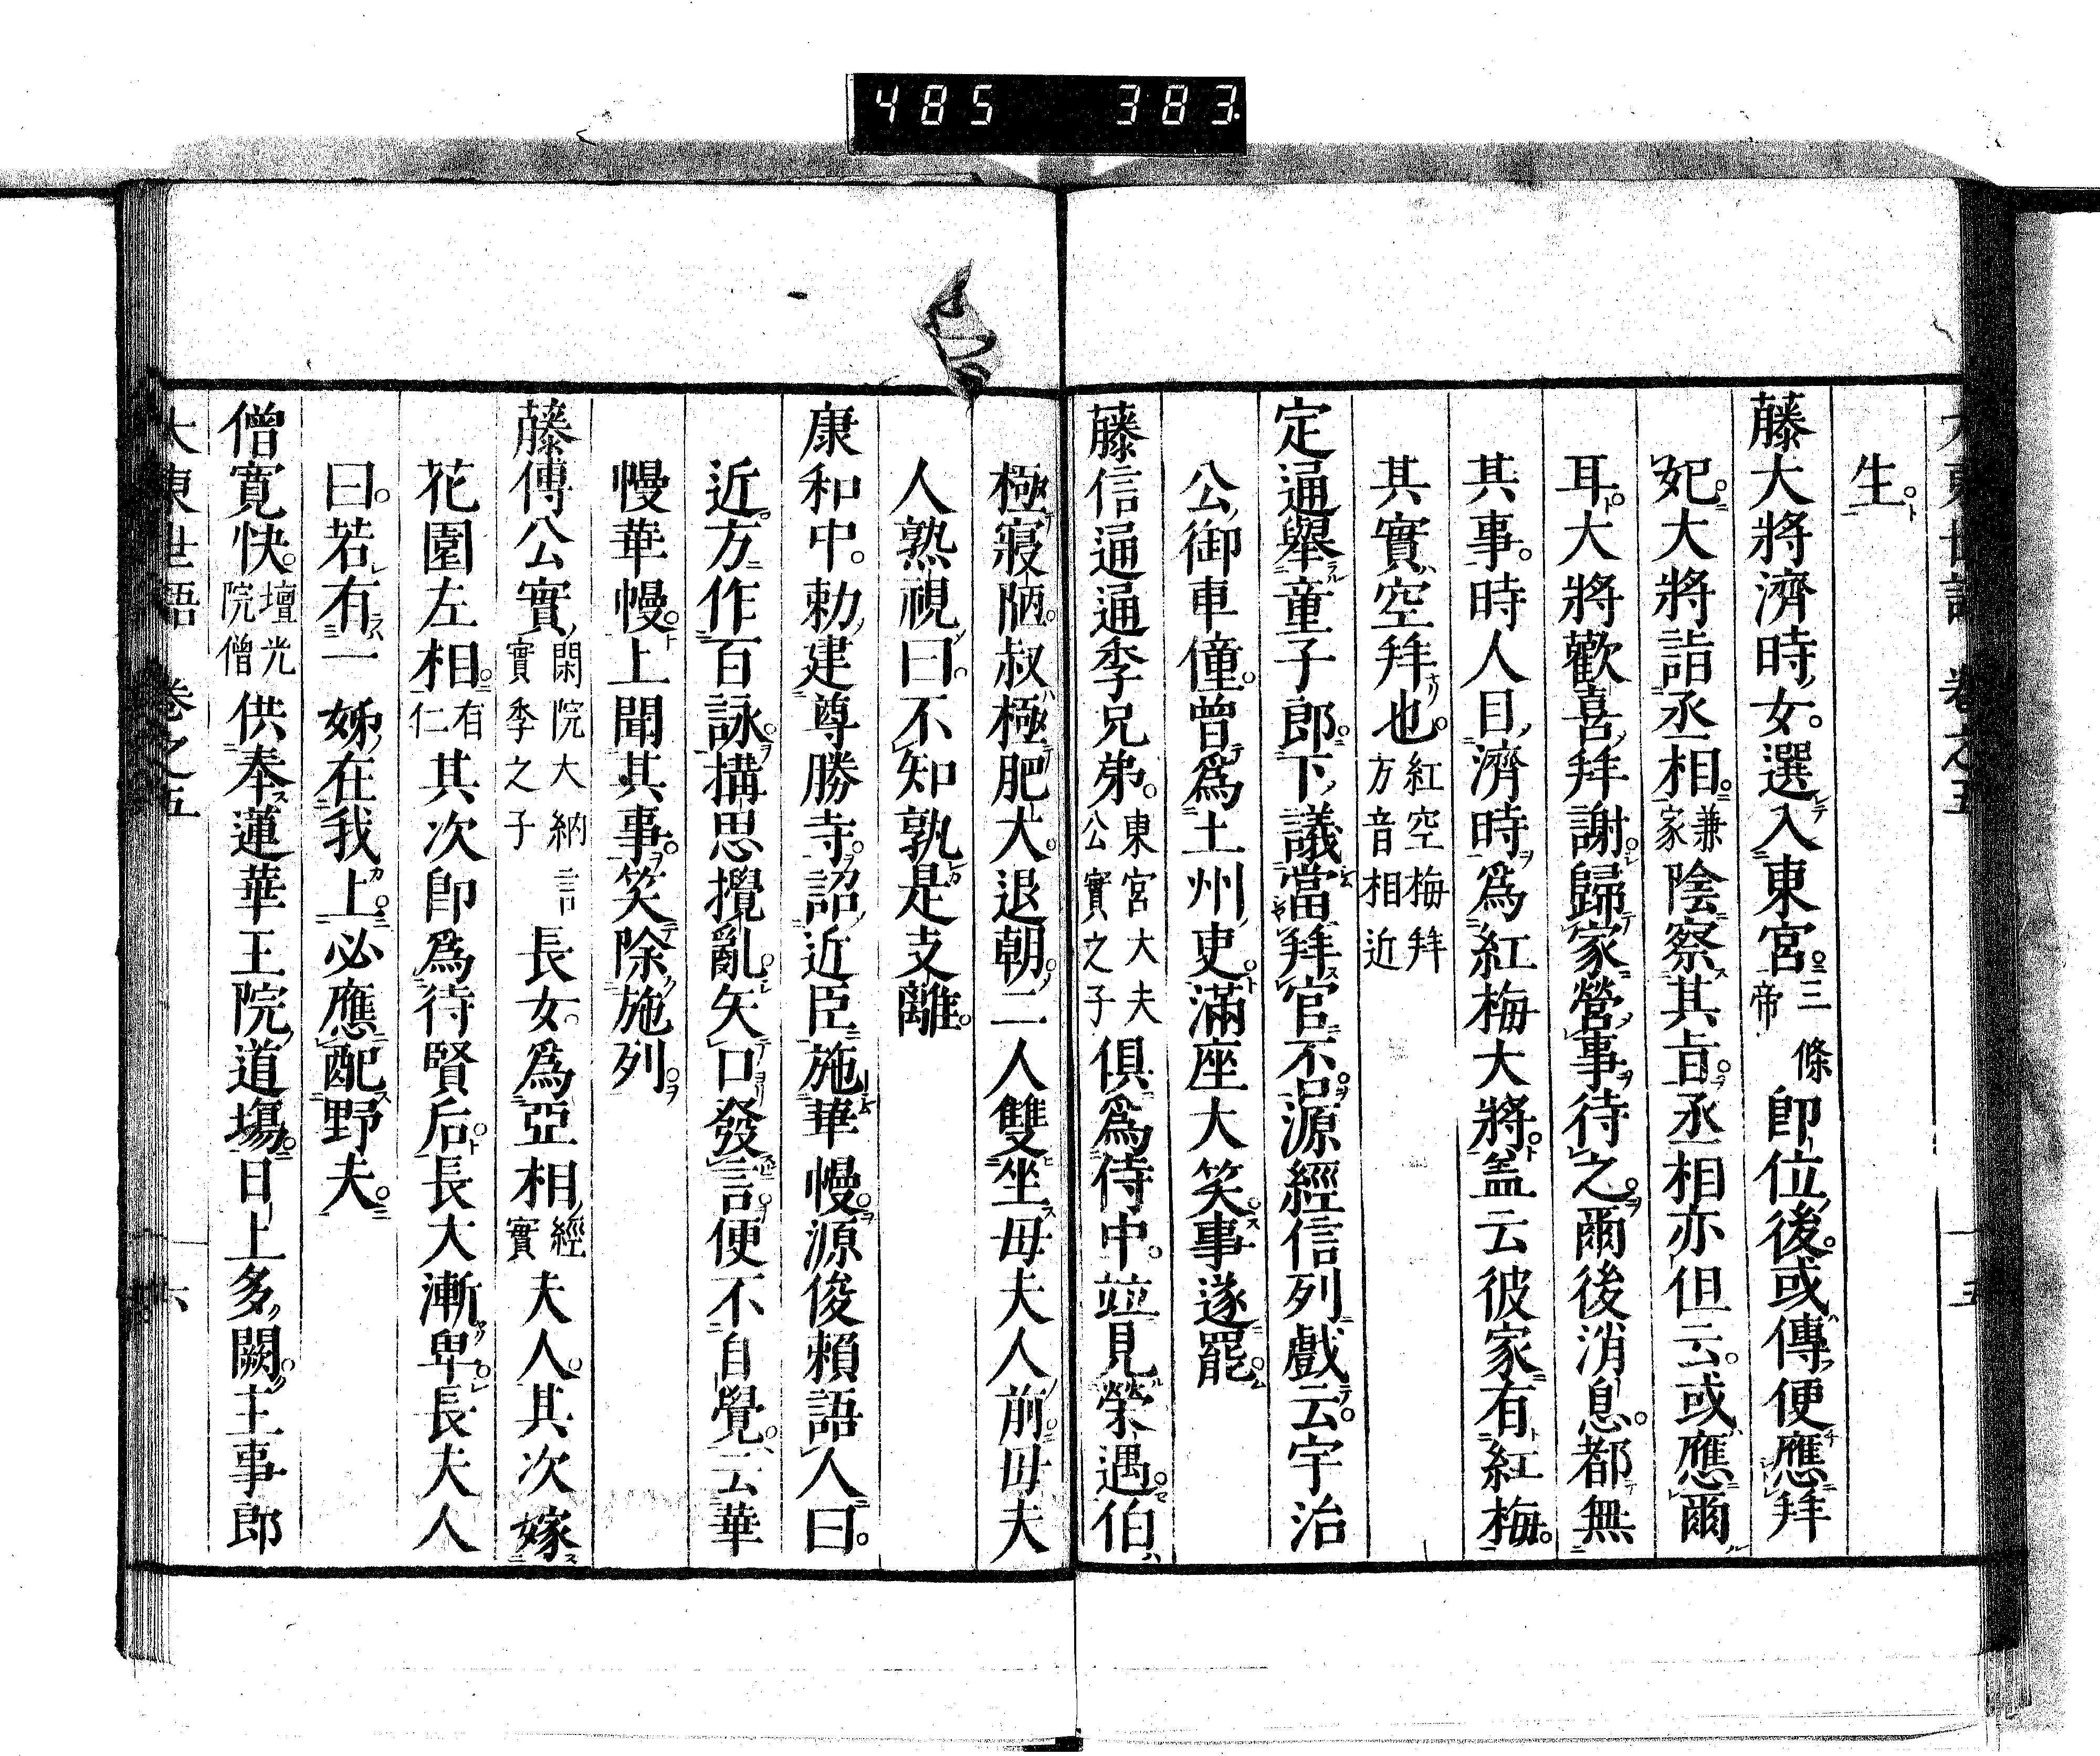 485 383
大東世語 卷之五 十五
生
藤大將濟時女選入東宮三條帝卽位後或傳便應拜
妃大將詣丞相兼家陰察其旨丞相亦但云或應爾
耳大將歡喜拜謝歸家營事待之爾後消息都無
其事時人目濟時爲紅梅大將盖云彼家有紅梅
其實空拜也紅空梅拜方音相近
定通舉童子郎下議當拜官不源經信列戲云宇治
公御車僮曾爲土州吏滿座大笑事遂罷
藤信通通季兄弟東宮大夫公實之子俱爲侍中竝見榮遇伯
極寢陋叔極肥大退朝二人雙坐母夫人前母夫
人熟視曰不知孰是支離
康和中勅建尊勝寺詔近臣施華幔源俊賴語人曰
近方作百詠搆思攪亂矢口發言便不自覺云華
幔華幔上聞其事笑除施列
藤傅公實閑院大納言實季之子長女爲亞相經實夫人其次嫁
花園左相有仁其次卽爲待賢后長大漸卑長夫人
曰若有一姊在我上必應配野夫
僧寬快壇光院僧供奉蓮華王院道塲日上多闕主事郎
大東世語 卷之五 十六